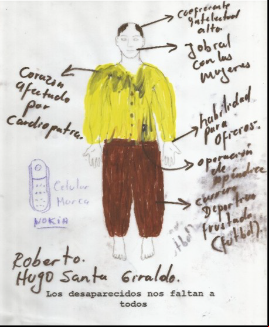 coeficiente
intelectual
alto.
Jobial
con las
mujeres
Corazón
afectado
por
Cardiopatia.
habilidad
para
oficios.
operación
de apendice
carrera
Deportiva
frustada
(futbol).
Celular
Marca
NOKIA
Roberto.
Hugo Santa Giraldo.
Los desaparecidos nos faltan a
todos